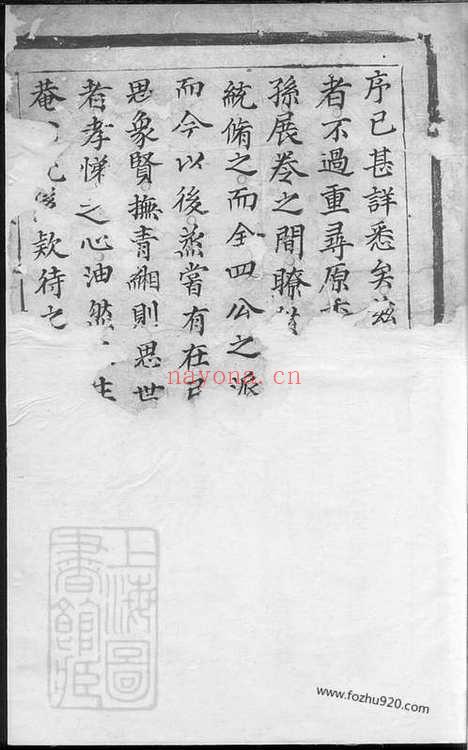 序已甚詳悉矣茲
者不過重尋原
孫展卷之間瞭
統脩之而全四公之派
而今以後蒸嘗有在已
思象賢撫青緗則思世
者孝悌之心油然
菴 欵待
nayona.cn
上海圖
書館藏
www.fozhu920.com